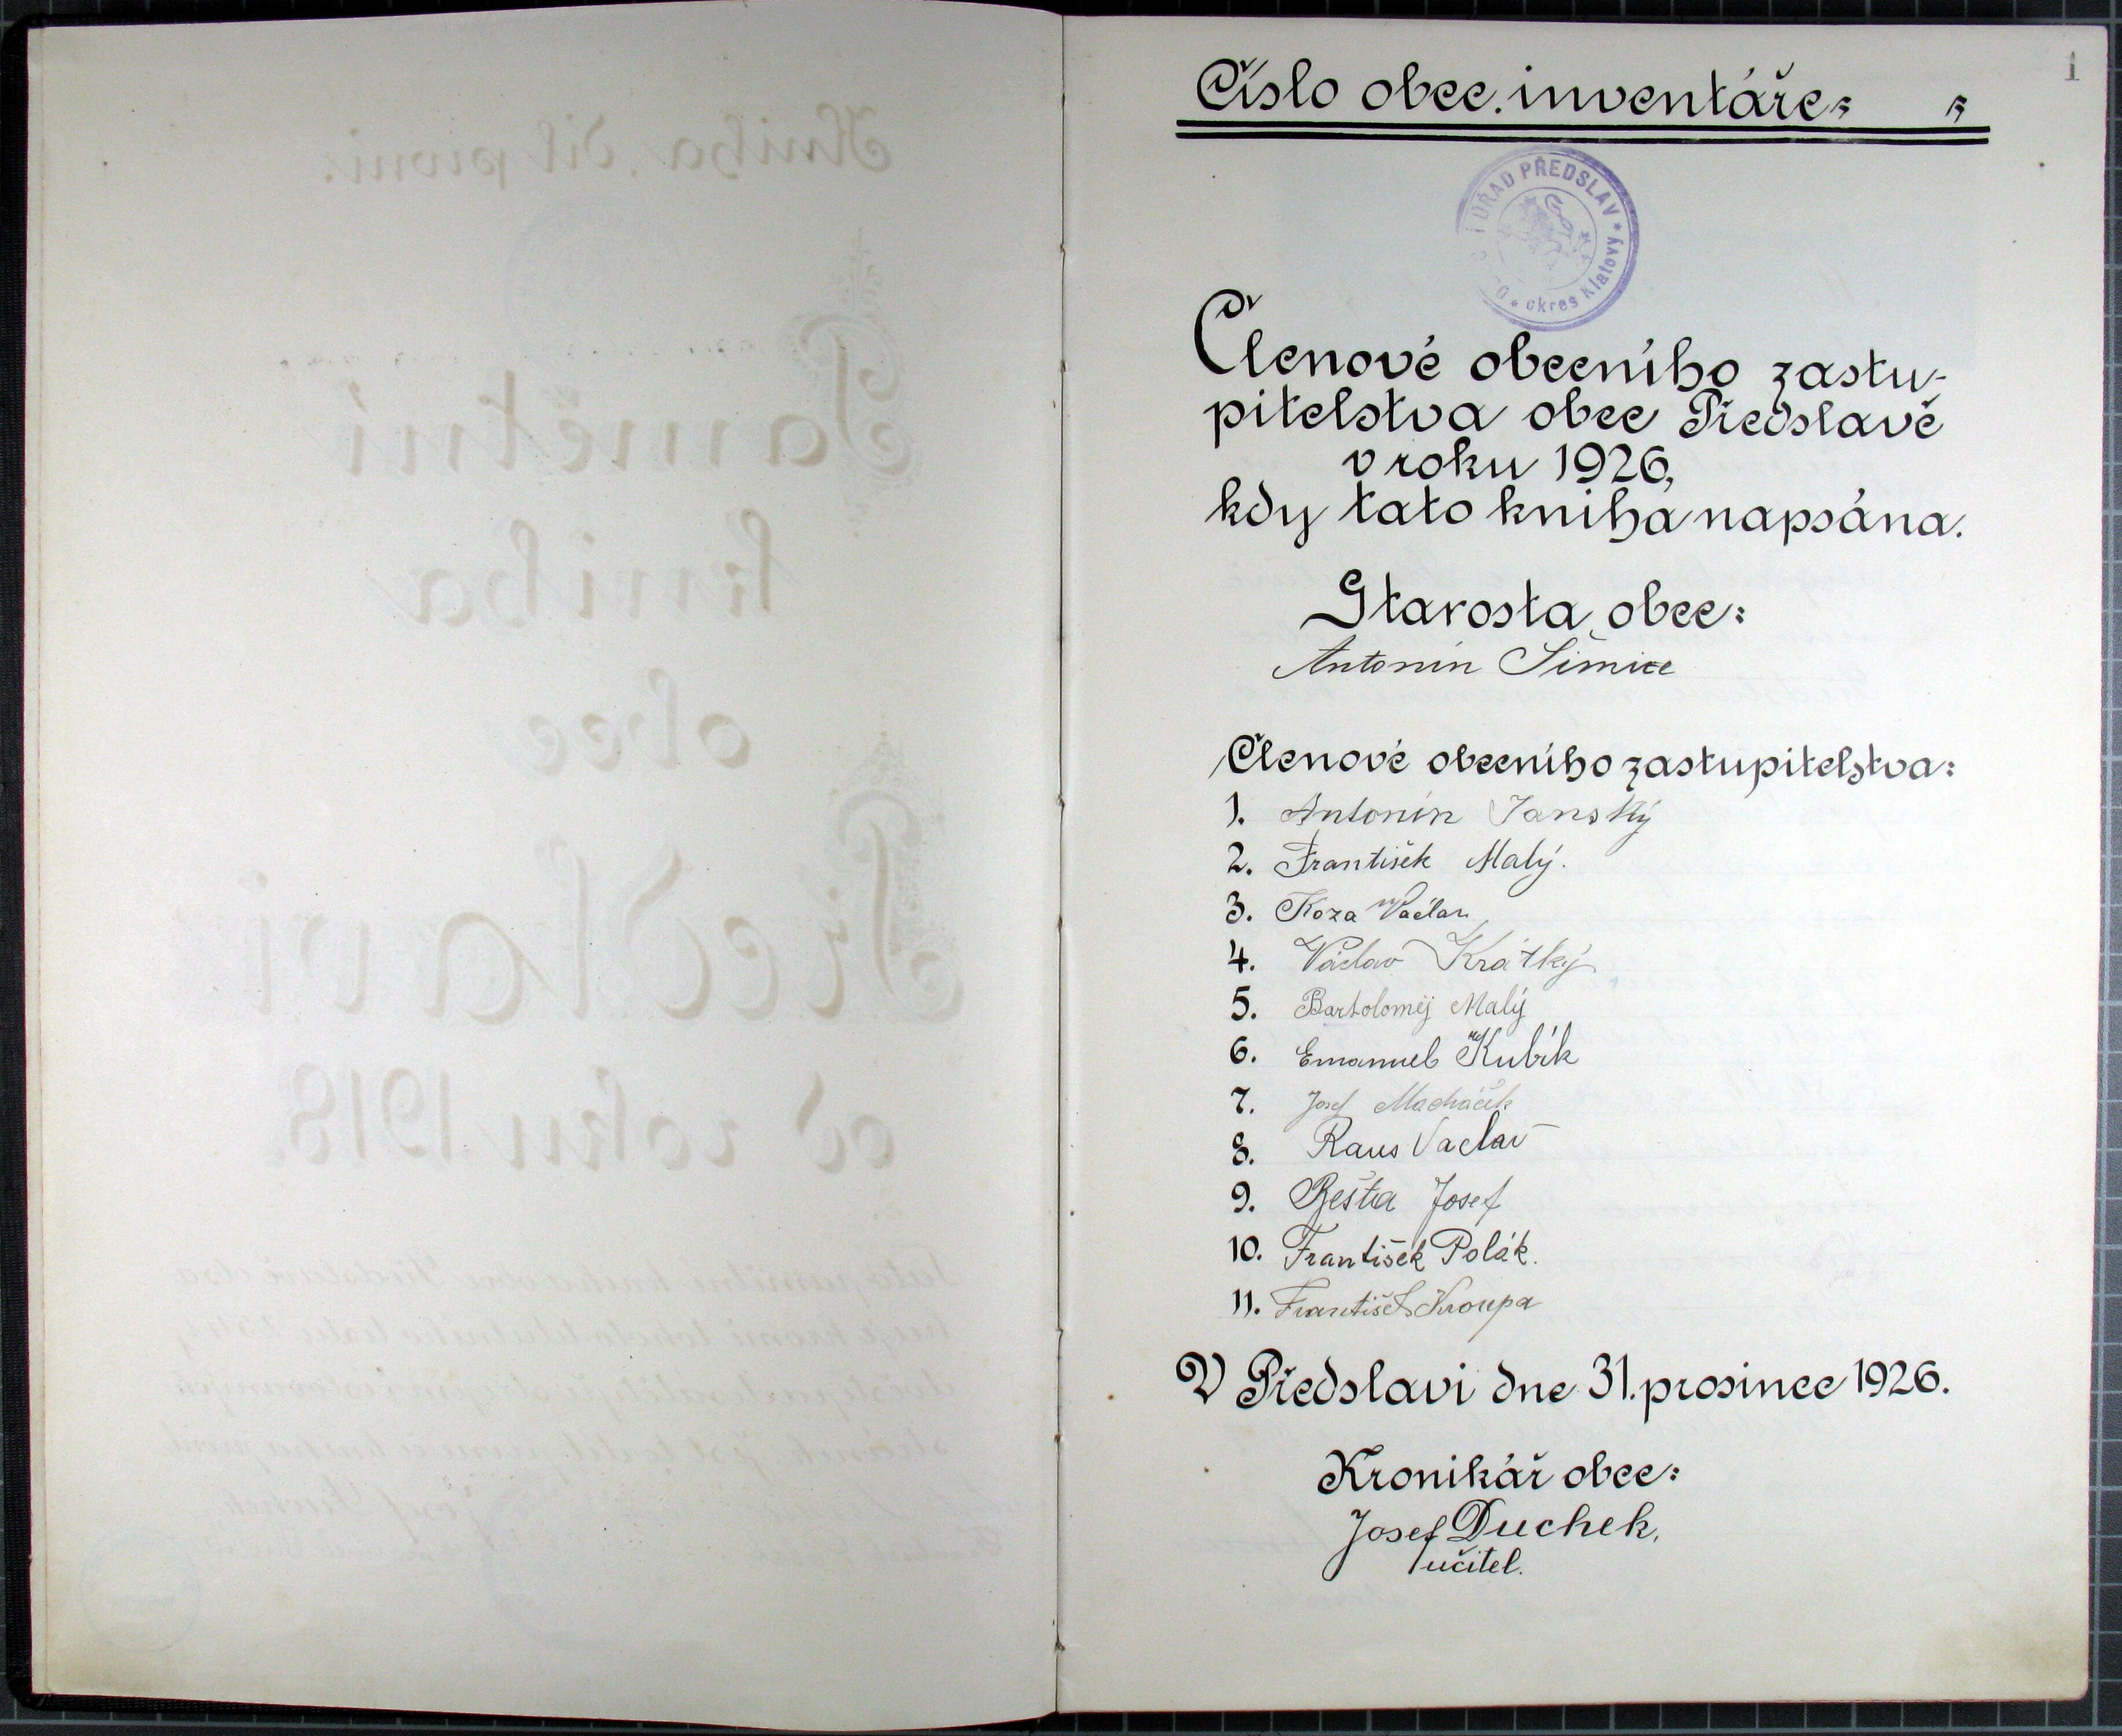 1
Číslo obec. inventáře:
ÚŘAD PŘEDSLAV * okres Klatovy *
Členové obecního zastu-
pitelstva obce Předslavě
v roku 1926,
kdy tato kniha napsána.
Starosta obce:
Antonín Šimice
Členové obecního zastupitelstva:
1. Antonín Janský
2. František Malý.
3. Koza Václav
4. Václav Krátký
5. Bartoloměj Malý
6. Emanuel Kubík
7. Josef Macháček
8. Raus Vaclav
9. Bešta Josef
10. František Polák.
11. František Kroupa
V Předslavi dne 31. prosince 1926.
Kronikář obce:
Josef Duchek,
učitel.